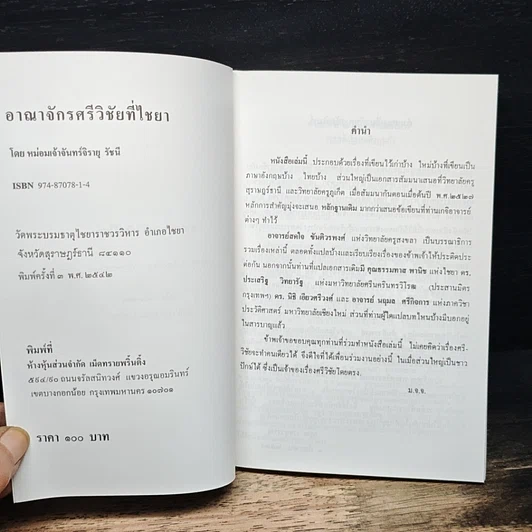 อาณาจักรศรีวิชัยที่ไชยา
โดย หม่อมเจ้าจันทร์จิรายุ รัชนี
ISBN 974-87078-1-4
วัดพระบรมธาตุไชยาราชวรวิหาร อำเภอไชยา
จังหวัดสุราษฎร์ธานี ๘๔๑๑๐
พิมพ์ครั้งที่ ๓ พ.ศ. ๒๕๔๒
พิมพ์ที่
ห้างหุ้นส่วนจำกัด เม็ดทรายพริ้นติ้ง
๕๙๔/๙๐ ถนนจรัลสนิทวงศ์ แขวงอรุณอมรินทร์
เขตบางกอกน้อย กรุงเทพมหานคร ๑๐๗๐๑
ราคา ๑๐๐ บาท
คำนำ
หนังสือเล่มนี้ ประกอบด้วยเรื่องที่เขียนไว้เก่าบ้าง ใหม่บ้างที่เขียนเป็น
ภาษาอังกฤษบ้าง ไทยบ้าง ส่วนใหญ่เป็นเอกสารสัมมนาเสนอที่วิทยาลัยครู
สุราษฎร์ธานี และวิทยาลัยครูภูเก็ต เมื่อสัมมนากันตอนเมื่อต้นปี พ.ศ.๒๕๒๗
หลักการสำคัญมุ่งจะเสนอ หลักฐานเดิม มากกว่าเสนอข้อเขียนที่ท่านเกจิอาจารย์
ต่างๆ ทำไว้
อาจารย์สหไจ ชันติวรพงศ์ แห่งวิทยาลัยครูสงขลา เป็นบรรณาธิการ
รวมเรื่องเหล่านี้ ตลอดทั้งแปลบ้างและเรียบเรียงเรื่องของข้าพเจ้าให้ประติดประ
ต่อกัน นอกจากนั้นท่านที่แปลเอกสารเดิมมี คุณธรรมทาส พานิช แห่งไชยา ดร.
ประเสริฐ วิทยารัฐ แห่งมหาวิทยาลัยศรีนครินทรวิโรฒ (ประสานมิตร
กรุงเทพฯ) ดร. นิธิ เอียวศรีวงศ์ และ อาจารย์ นฤมล ศรีกิจการ แห่งภาควิชา
ประวัติศาสตร์ มหาวิทยาลัยเชียงใหม่ ส่วนที่ท่านผู้ใดแปลบทไหนบ้างมีบอกอยู่
ในสารบาญแล้ว
ข้าพเจ้าขอขอบคุณทุกท่านที่ร่วมทำหนังสือเล่มนี้ ไม่เคยคิดว่าเรื่องศรี-
วิชัยจะทำคนเดียวได้ จึงดีใจที่ได้เพื่อนร่วมงานอย่างนี้ ในเมื่อส่วนใหญ่เป็นชาว
ปักษ์ใต้ ซึ่งเป็นเจ้าของเรื่องศรีวิชัยโดยตรง.
ม.จ.จ.